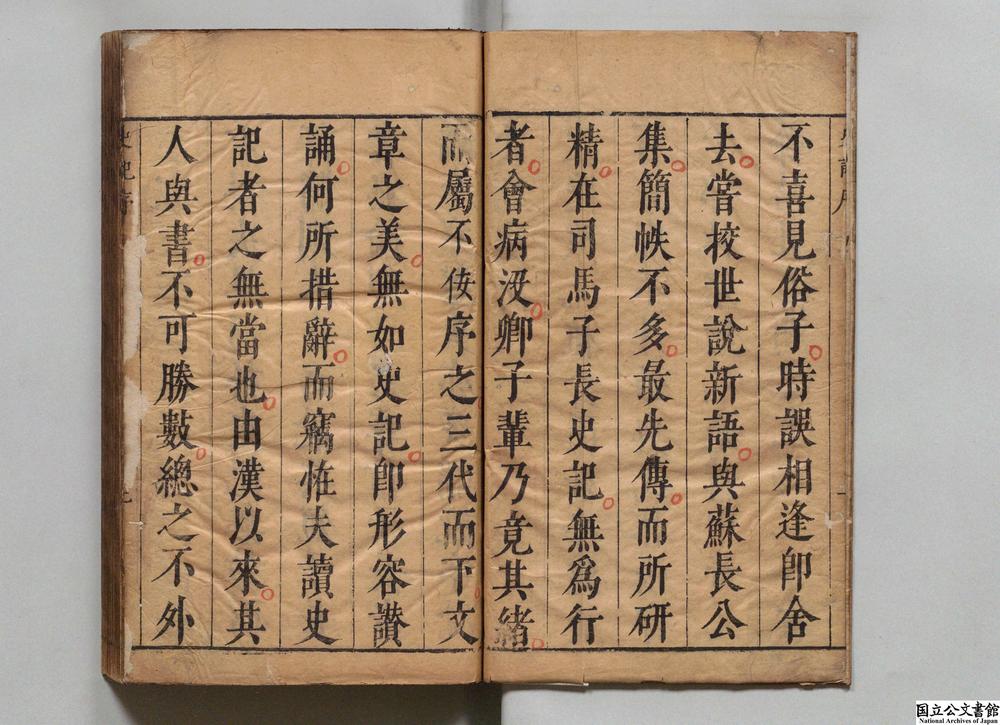 不喜見俗子時誤相逢卽舍
去嘗挍世說新語與蘇長公
集簡帙不多最先傳而所研
精在司馬子長史記無爲行
者會病沒卿子輩乃竟其緒
而屬不佞序之三代而下文
章之美無如史記卽形容讃
誦何所措辭而竊恠夫讀史
記者之無當也由漢以來其
人與書不可勝數總之不外
国立公文書館
National Archives of Japan